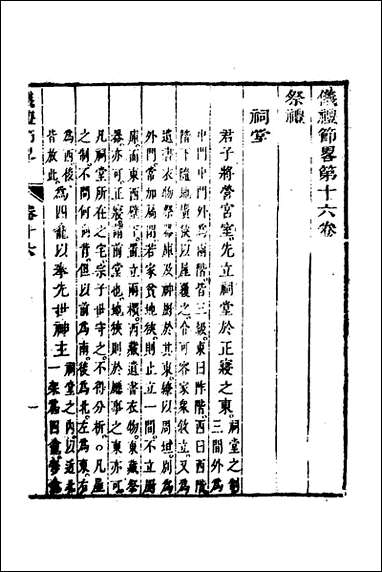 儀禮節畧第十六卷
祭禮
祠堂
君子將營宮室先立祠堂於正寢之東祠堂之制三間外為
中門中門外為兩階皆三級東曰阼階西曰西
階下隨地廣狹以屋覆之令可容家衆敘立又為
遺書衣物祭器庫及神厨於其東繚以周垣別為
外門常加扃閉若家貧地狹則止立一間不立厨
庫而東西壁下置立兩櫃西藏遺書衣物東藏祭
器亦可正寢謂前堂也地狹則於廳事之東亦可
凡祠堂所在之宅宗子世守之不得分析○凡屋
之制不問何向背但以前為南後為北左為東右
為西後皆放此為四龕以奉先世神主祠堂之內以近北一架為四龕每龕
卷十六
一